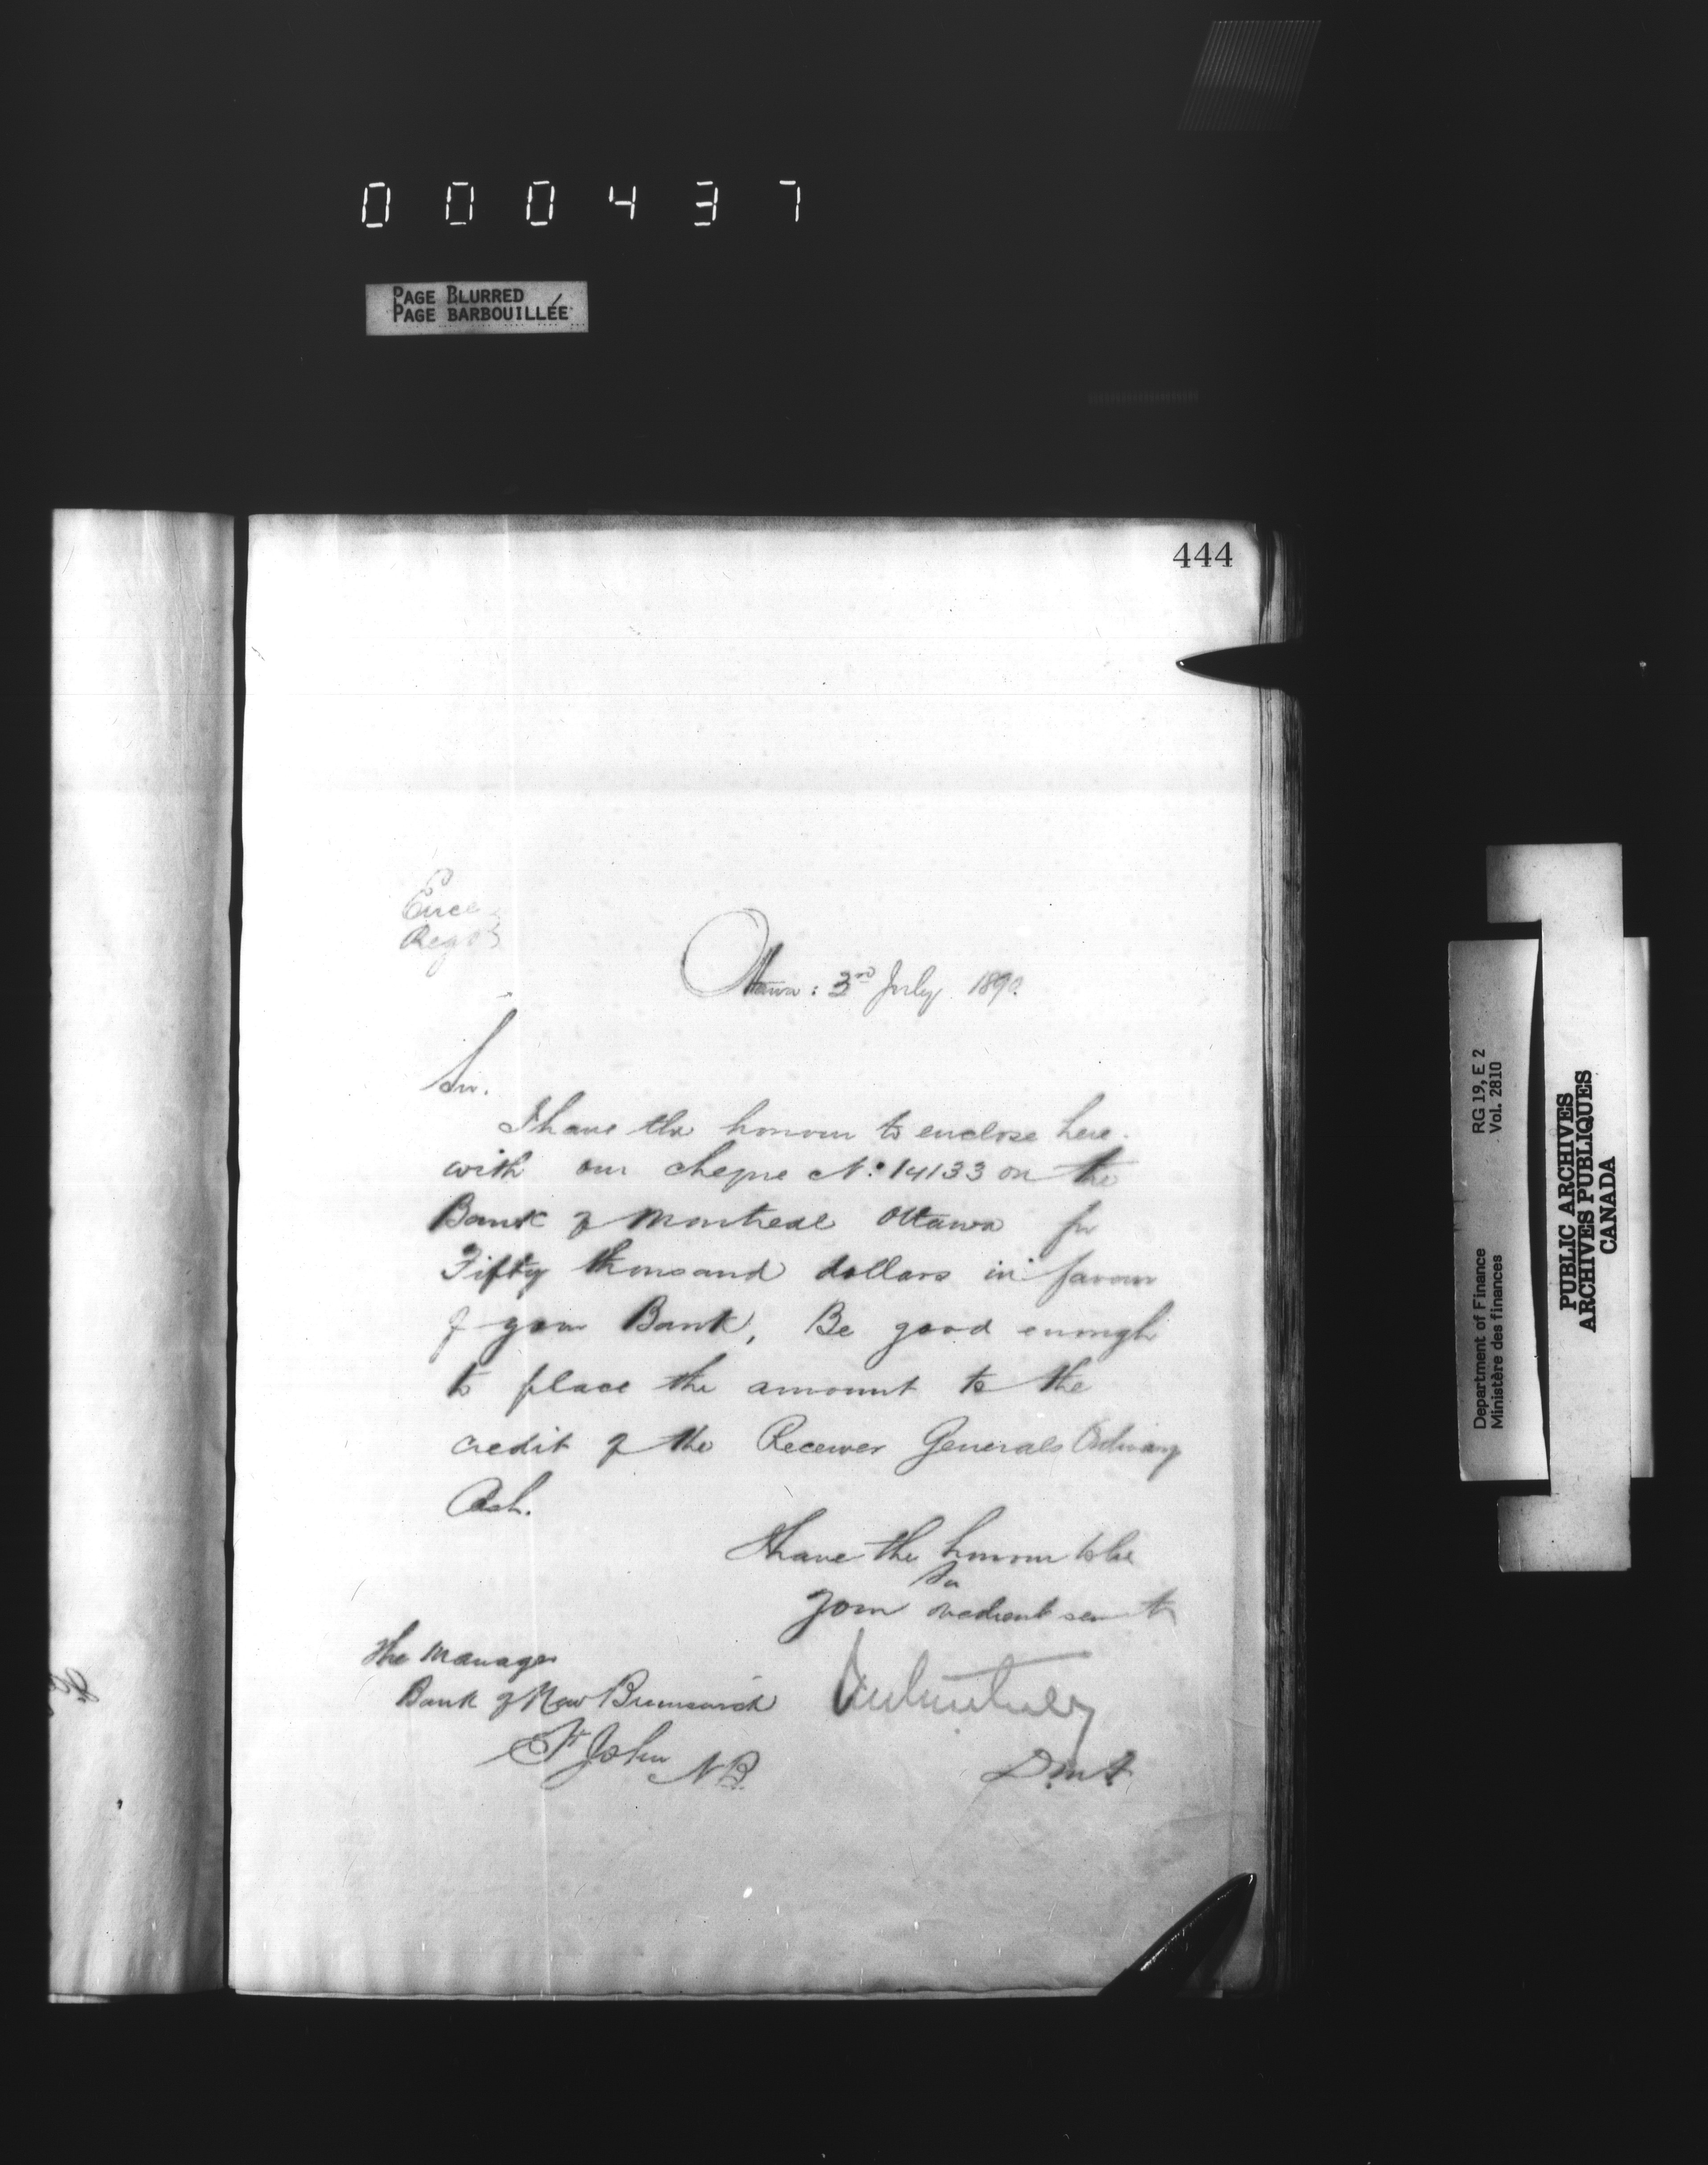 000437
PAGE BLURRED
PAGE BARBOUILLÉE
444
Ence
Regd
Ottawa: 3rd July 1890.
Sir.
I have the honour to enclose here-
with our cheque No. 14133 on the
Bank of Montreal Ottawa for
Fifty thousand dollars in favour
of your Bank, Be good enough
to place the amount to the
credit of the Receiver Generals Ordinary
Acct.
I have the honour to be
Sir
Your obedient servant
The Manager
Bank of New Brunswick
St John N.B.
D.M.F.
Department of Finance RG 19, E 2
Ministère des finances Vol. 2810
PUBLIC ARCHIVES
ARCHIVES PUBLIQUES
CANADA